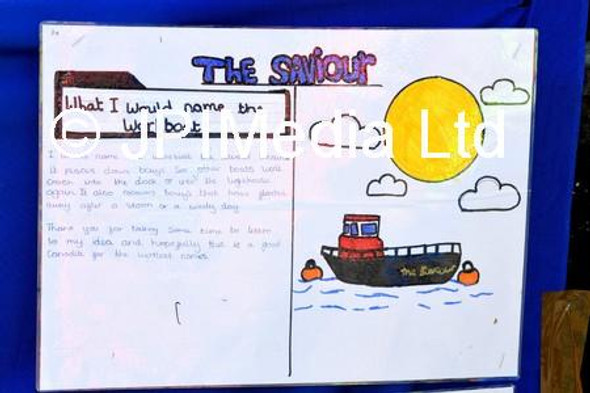 The Saviour
What I would name the
Workboat
© JPIMedia Ltd
I name
It places down buoys so other boats wont
crash into the dock or into the
again. It also recovers buoys that have floated
away after a storm or a windy day.
Thank you for taking some time to listen
to my idea and hopefully this is a good
for the names.
The Saviour